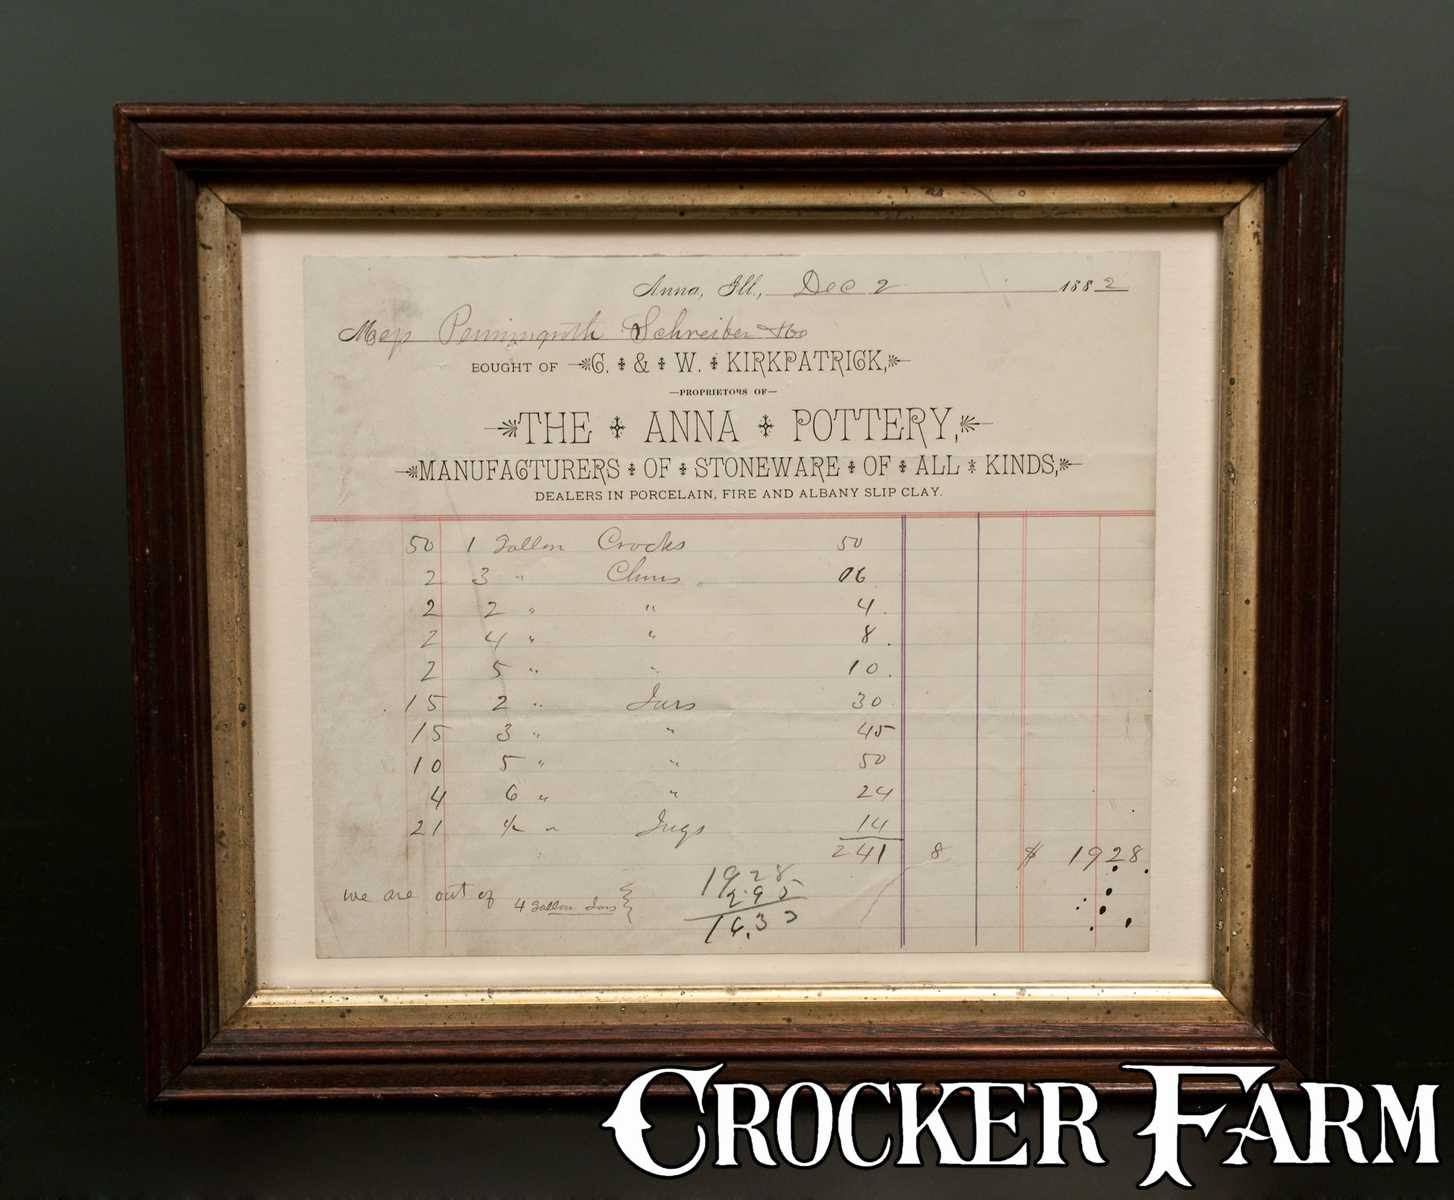 Anna, Ill., Dec 2 1882
Schreiber & Co
BOUGHT OF G. & W. KIRKPATRICK,
—PROPRIETORS OF—
THE ANNA POTTERY,
MANUFACTURERS OF STONEWARE OF ALL KINDS,
DEALERS IN PORCELAIN, FIRE AND ALBANY SLIP CLAY.
50 1 Gallon Crocks 50
2 3 " Churs 06
2 2 " " 4.
2 4 " " 8.
2 5 " " 10.
15 2 " Jars 30
15 3 " " 45
10 5 " " 50
4 6 " " 24
21 " Jugs 14
241 8 $ 1928
we are out of 4 Gallon Jars
1928
295
CROCKER FARM